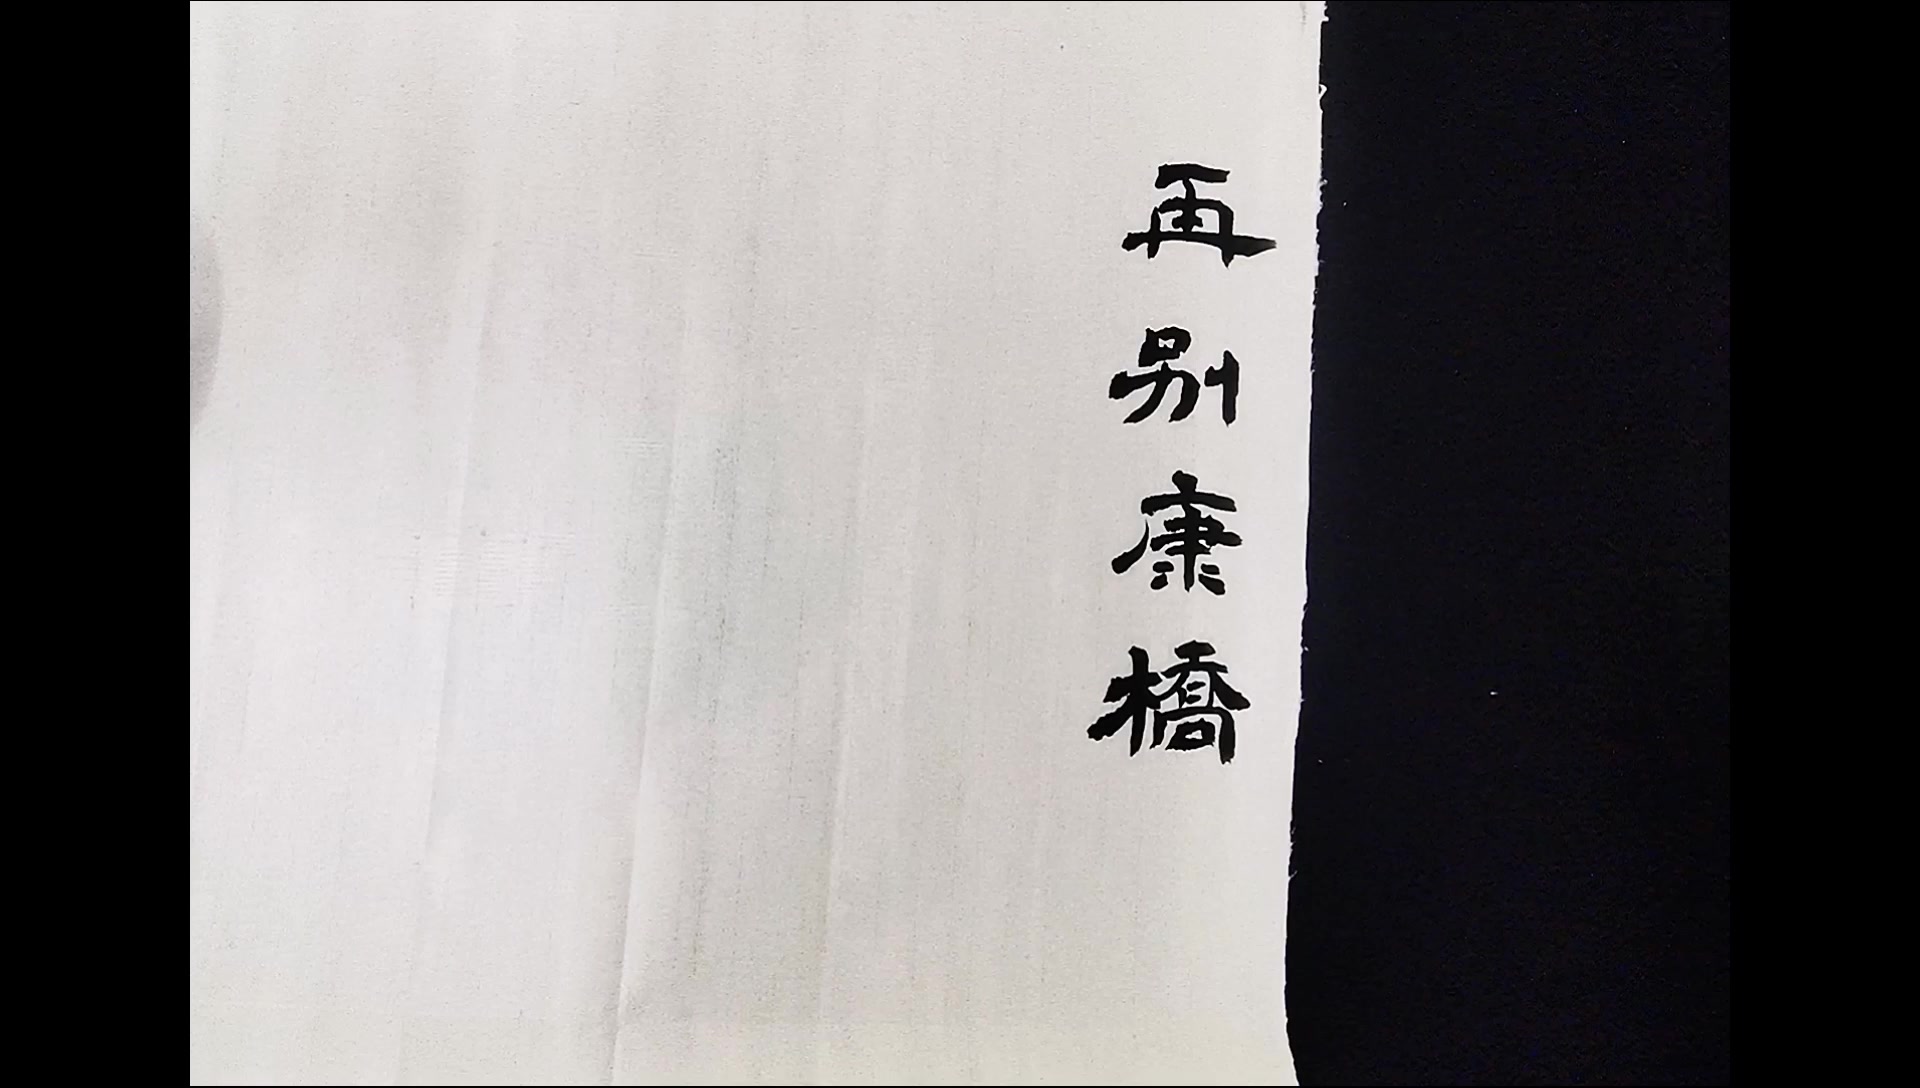 再别康橋